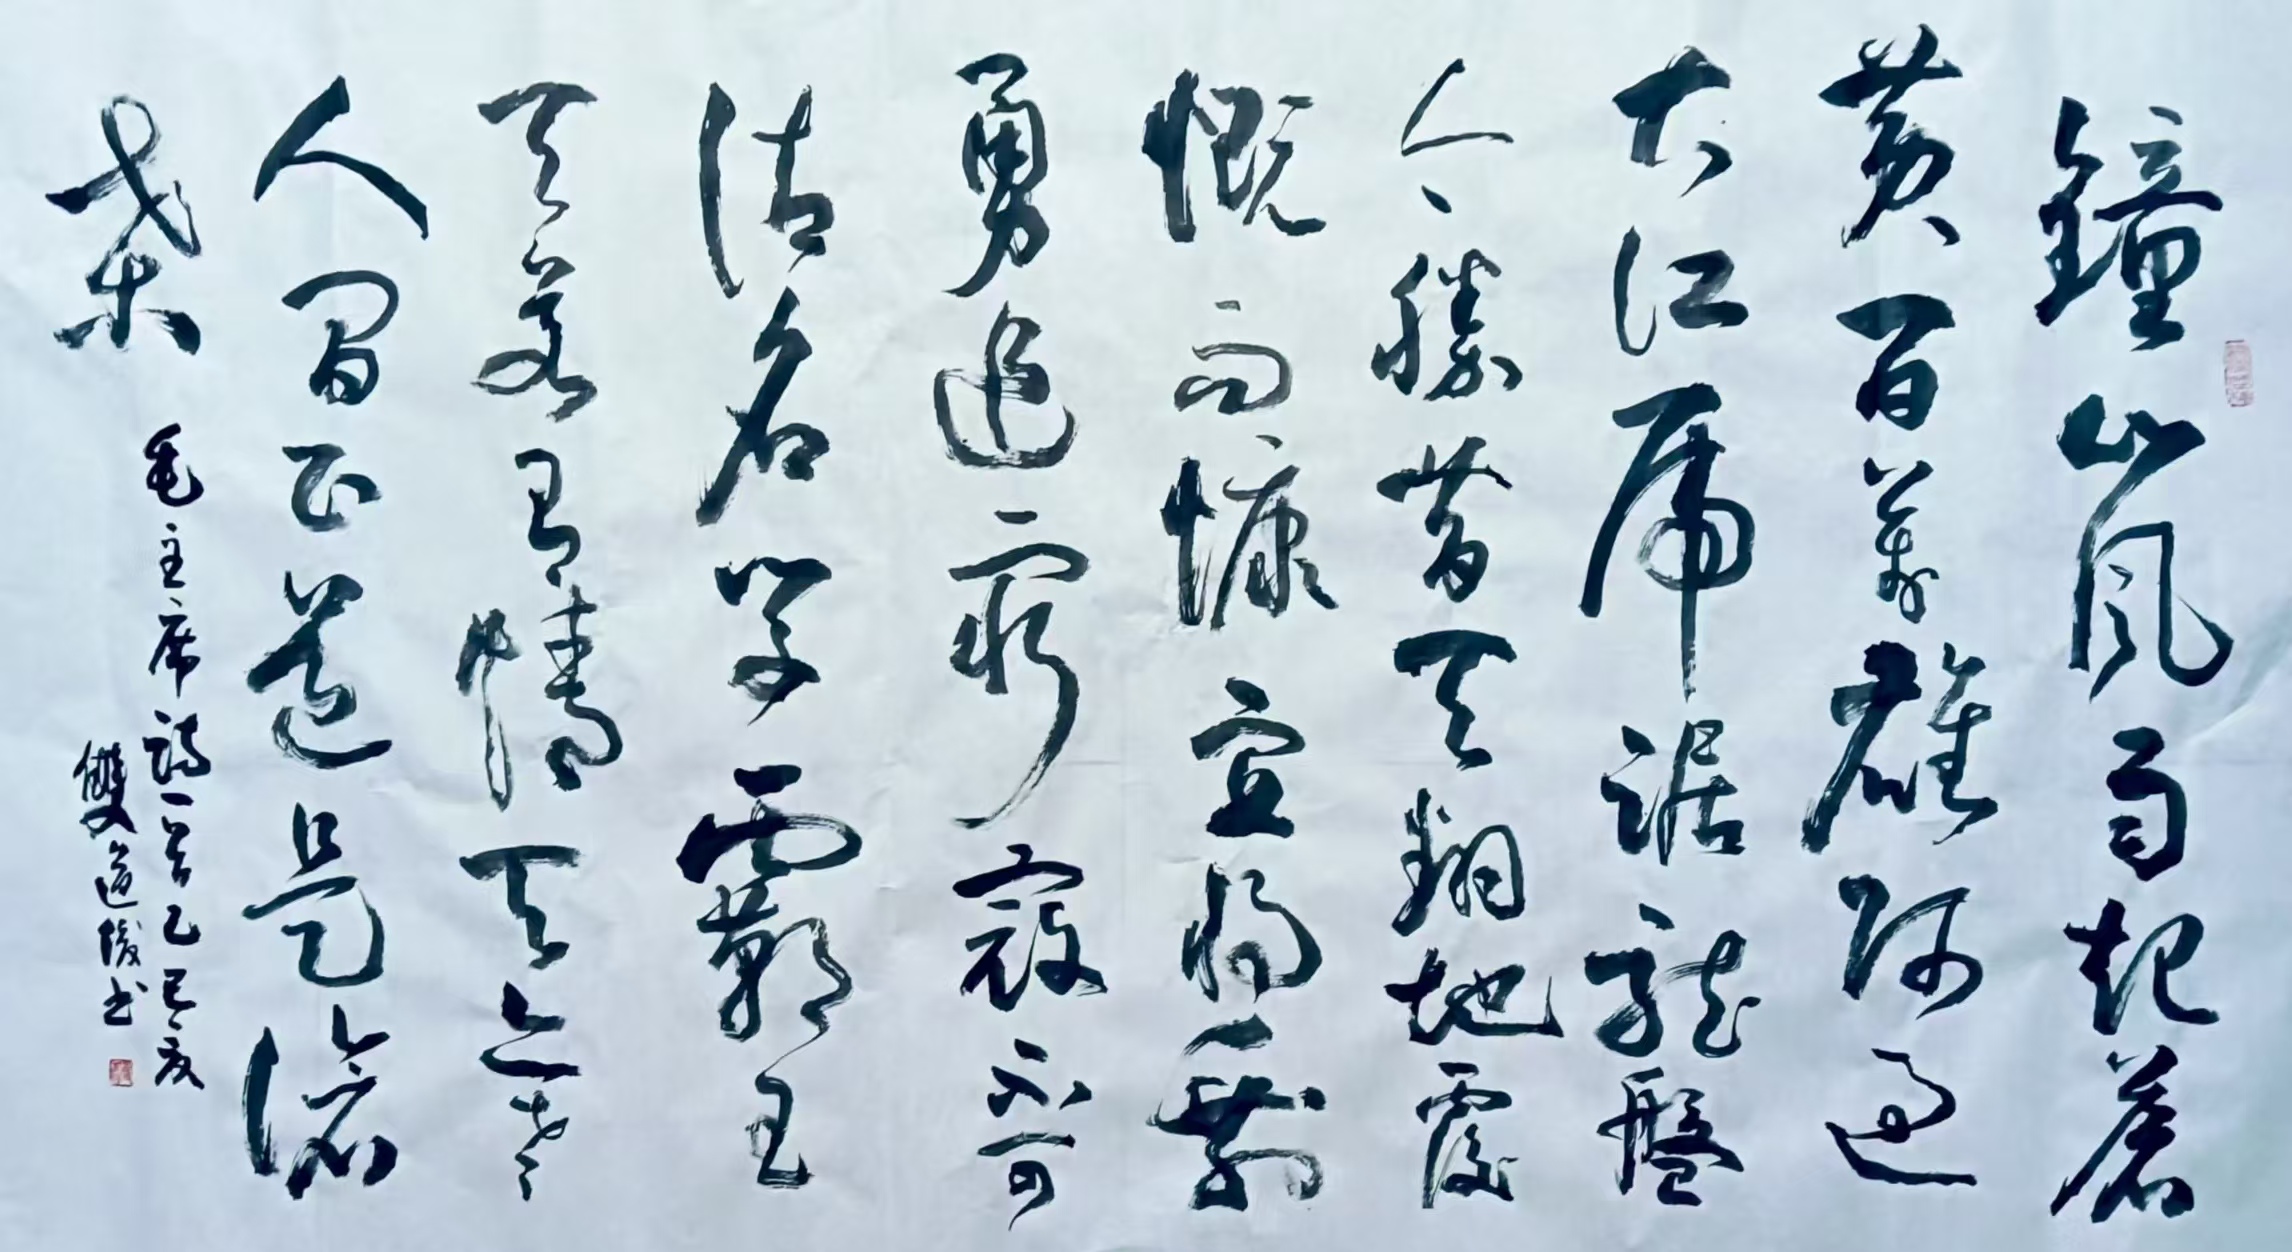 鐘山風雨起蒼
黄百萬雄师過
大江虎踞龍盤
今勝昔天翻地覆
慨而慷宜将剩
勇追窮寇不可
沽名学霸王
天若有情天亦老
人間正道是滄
桑
毛主席詩一首乙巳夏
雙道俊书